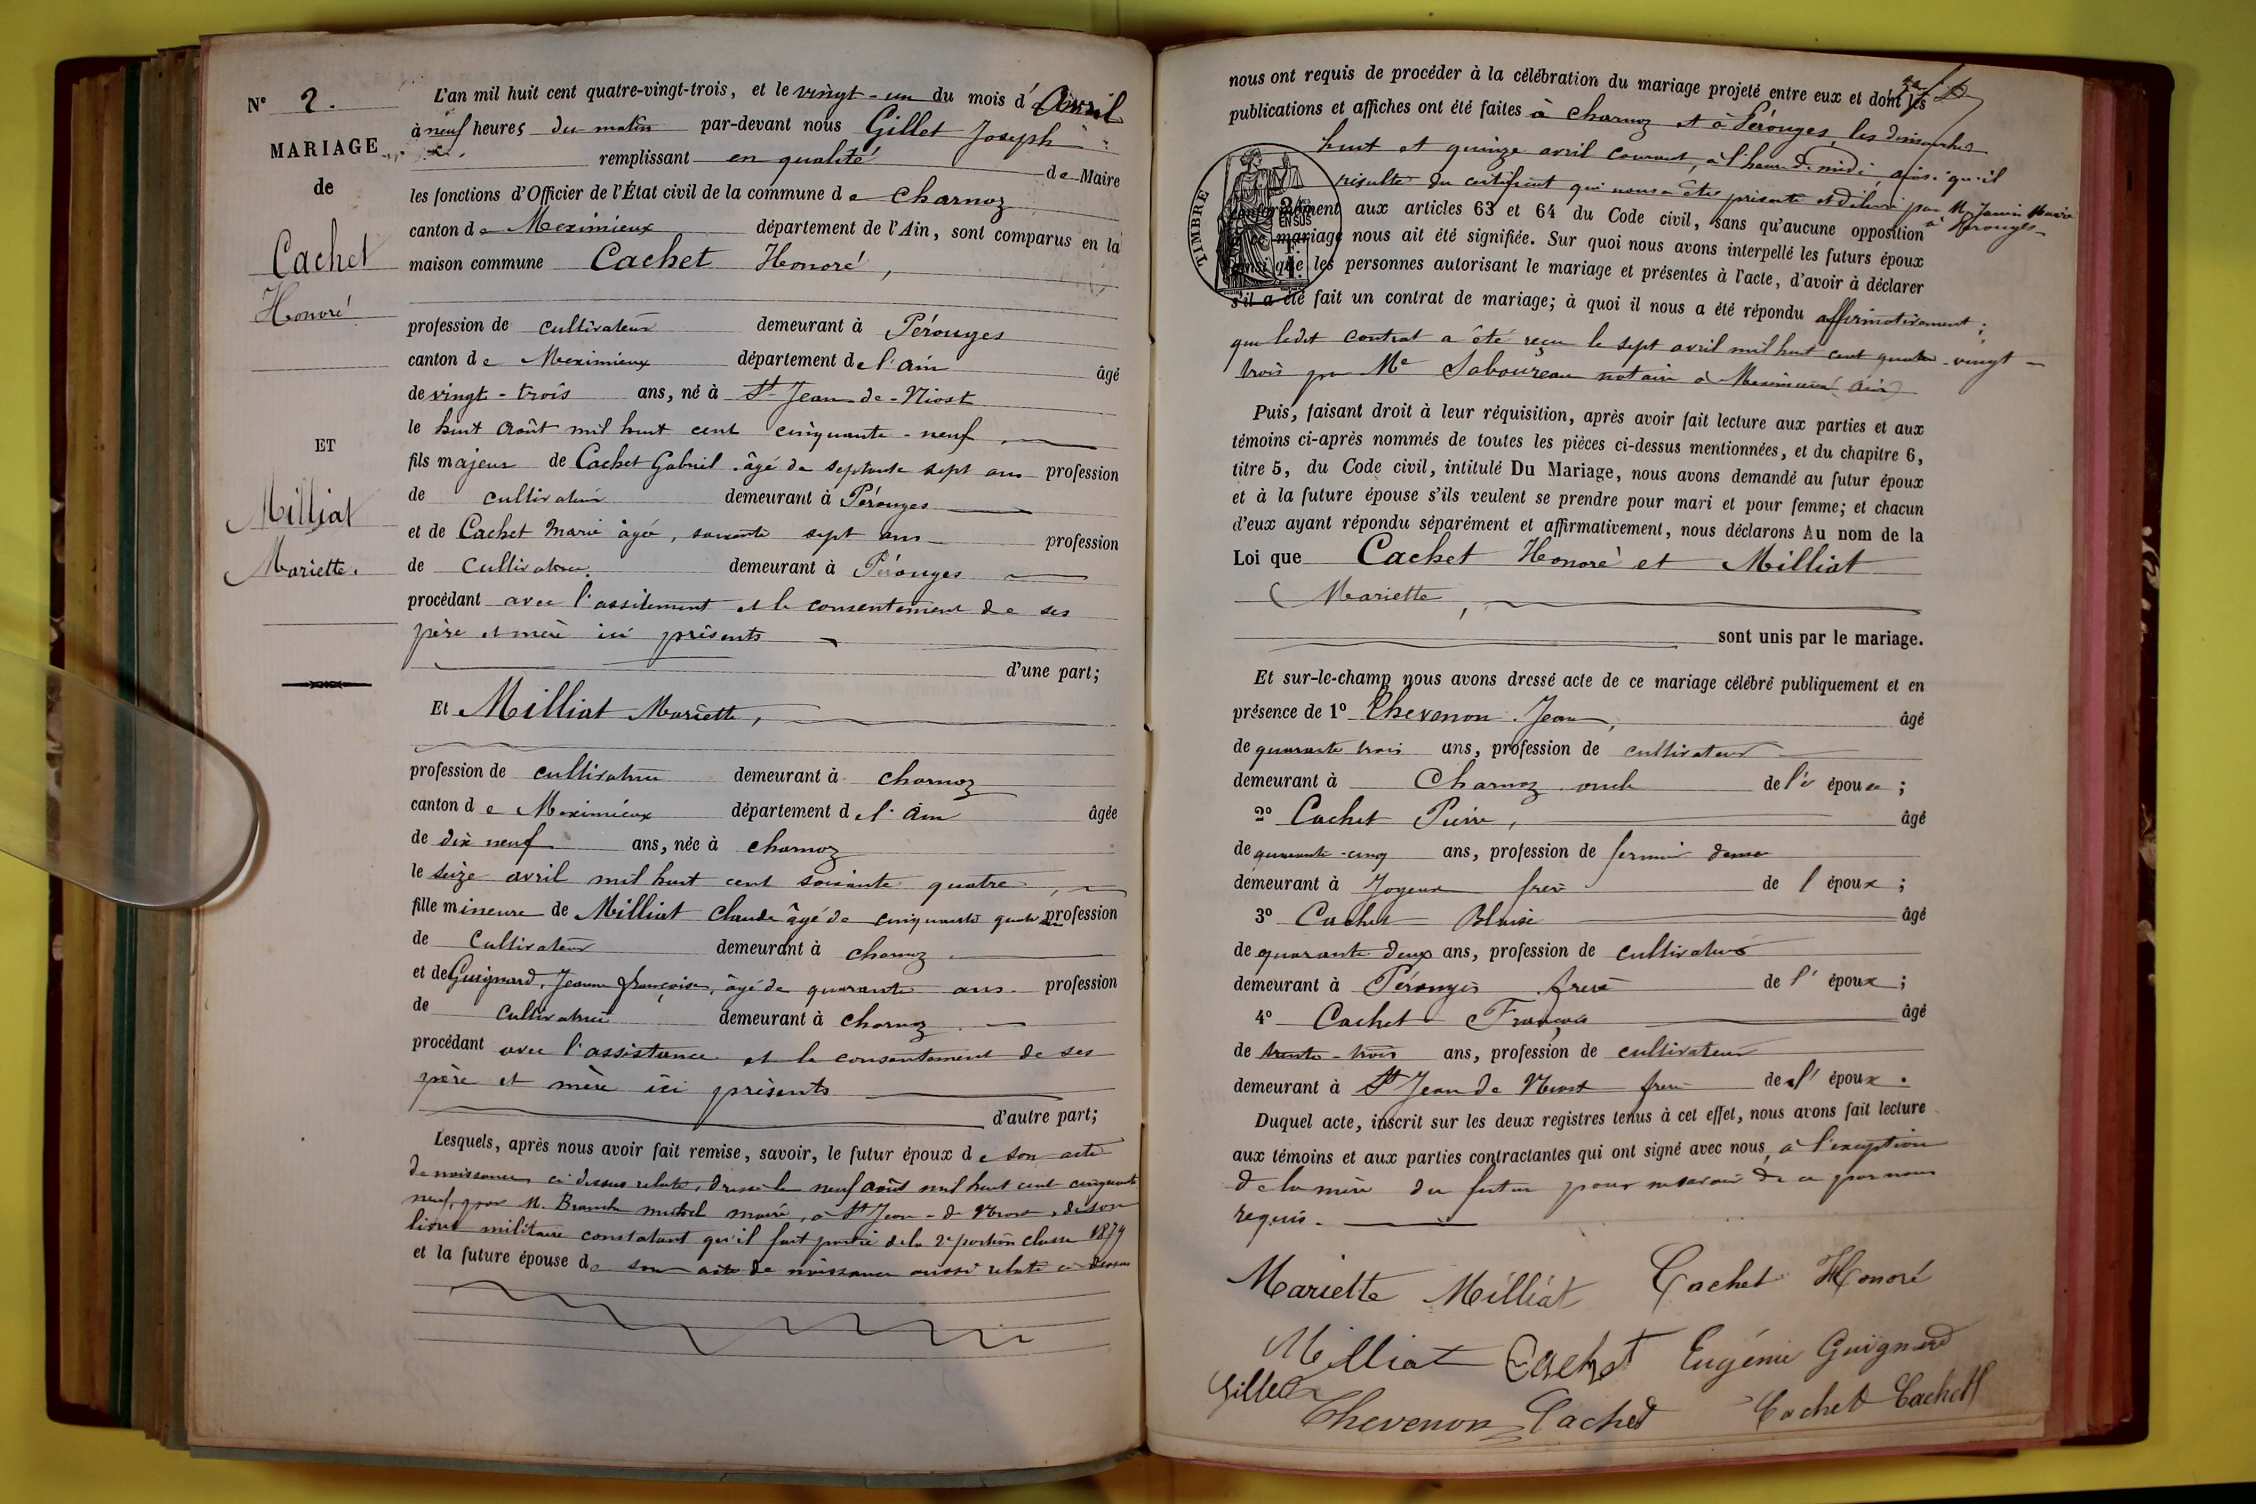 N° 2.
MARIAGE
de
Cachet
Honoré
ET
Milliat
Mariette.
L'an mil huit cent quatre-vingt-trois, et le vingt-un du mois d'Avril
à neuf heures du matin par-devant nous Gillet Joseph
remplissant en qualité de Maire
les fonctions d'Officier de l'État civil de la commune de Charnoz
canton de Meximieux département de l'Ain, sont comparus en la
maison commune Cachet Honoré,
profession de cultivateur demeurant à Pérouges
canton de Meximieux département de l'Ain âgé
de vingt-trois ans, né à St Jean-de-Niost
le huit Août mil huit cent cinquante-neuf
fils majeur de Cachet Gabriel âgé de septante sept ans profession
de cultivateur demeurant à Pérouges
et de Cachet Marie âgée, soixante sept ans profession
de cultivatrice demeurant à Pérouges
procédant avec l'assitement et le consentement de ses
père et mère ici présents
d'une part;
Et Milliat Mariette,
profession de cultivatrice demeurant à Charnoz
canton de Meximieux département de l'Ain âgée
de dix neuf ans, née à Charnoz
le seize avril mil huit cent soixante quatre,
fille mineure de Milliat Claude âgé de cinquante quatre profession
de Cultivateur demeurant à Charnoz
et de Guignard, Jeanne françoise, âgé de quarante ans profession
de Cultivatrice demeurant à Charnoz
procédant avec l'assistance et le consentement de ses
père et mère ici présents
d'autre part;
Lesquels, après nous avoir fait remise, savoir, le futur époux de son acte
de naissance ci dessus relaté, dressé le neuf Août mil huit cent cinquante
neuf, par M. michel maire, à St Jean-de Niost, de son
livret militaire constatant qu'il fait partie de la 2e portion classe 1879
et la future épouse de son acte de naissance aussi relaté ci dessus
nous ont requis de procéder à la célébration du mariage projeté entre eux et dont les
publications et affiches ont été faites à Charnoz et à Pérouges, les dimanches
huit et quinze avril courant, à l'heure de midi, ainsi qu'il
résulte du certificat qui nous a été présenté et délivré par M. Maire
à Pérouges
TIMBRE
conformément aux articles 63 et 64 du Code civil, sans qu'aucune opposition
à ce mariage nous ait été signifiée. Sur quoi nous avons interpellé les futurs époux
ainsi que les personnes autorisant le mariage et présentes à l'acte, d'avoir à déclarer
s'il a été fait un contrat de mariage; à quoi il nous a été répondu affirmativement;
que ledit contrat a été reçu le sept avril mil huit cent quatre-vingt-
trois par Me Laboureau notaire à Meximieux Ain
Puis, faisant droit à leur réquisition, après avoir fait lecture aux parties et aux
témoins ci-après nommés de toutes les pièces ci-dessus mentionnées, et du chapitre 6,
titre 5, du Code civil, intitulé Du Mariage, nous avons demandé au futur époux
et à la future épouse s'ils veulent se prendre pour mari et pour femme; et chacun
d'eux ayant répondu séparément et affirmativement, nous déclarons Au nom de la
Loi que Cachet Honoré et Milliat
Mariette,
sont unis par le mariage.
Et sur-le-champ nous avons dressé acte de ce mariage célébré publiquement et en
présence de 1° Chevenon Jean, âgé
de quarante trois ans, profession de cultivateur
demeurant à Charnoz oncle de l'é épouse;
2° Cachet Pierre, âgé
de quarante-cinq ans, profession de fermier
demeurant à Joyeux frère de l'époux;
3° Cachet Blaise âgé
de quarante deux ans, profession de cultivateur
demeurant à Pérouges frère de l'époux;
4° Cachet François âgé
de trente-trois ans, profession de cultivateur
demeurant à St Jean de Niost frère de l'époux.
Duquel acte, inscrit sur les deux registres tenus à cet effet, nous avons fait lecture
aux témoins et aux parties contractantes qui ont signé avec nous, à l'exception
de la mère du futur pour ne savoir de ce par nous
requis.
Mariette Milliat Cachet Honoré
Milliat Cachet Eugénie Guignard
Gillet Chevenon Cachet Cachet Cachet